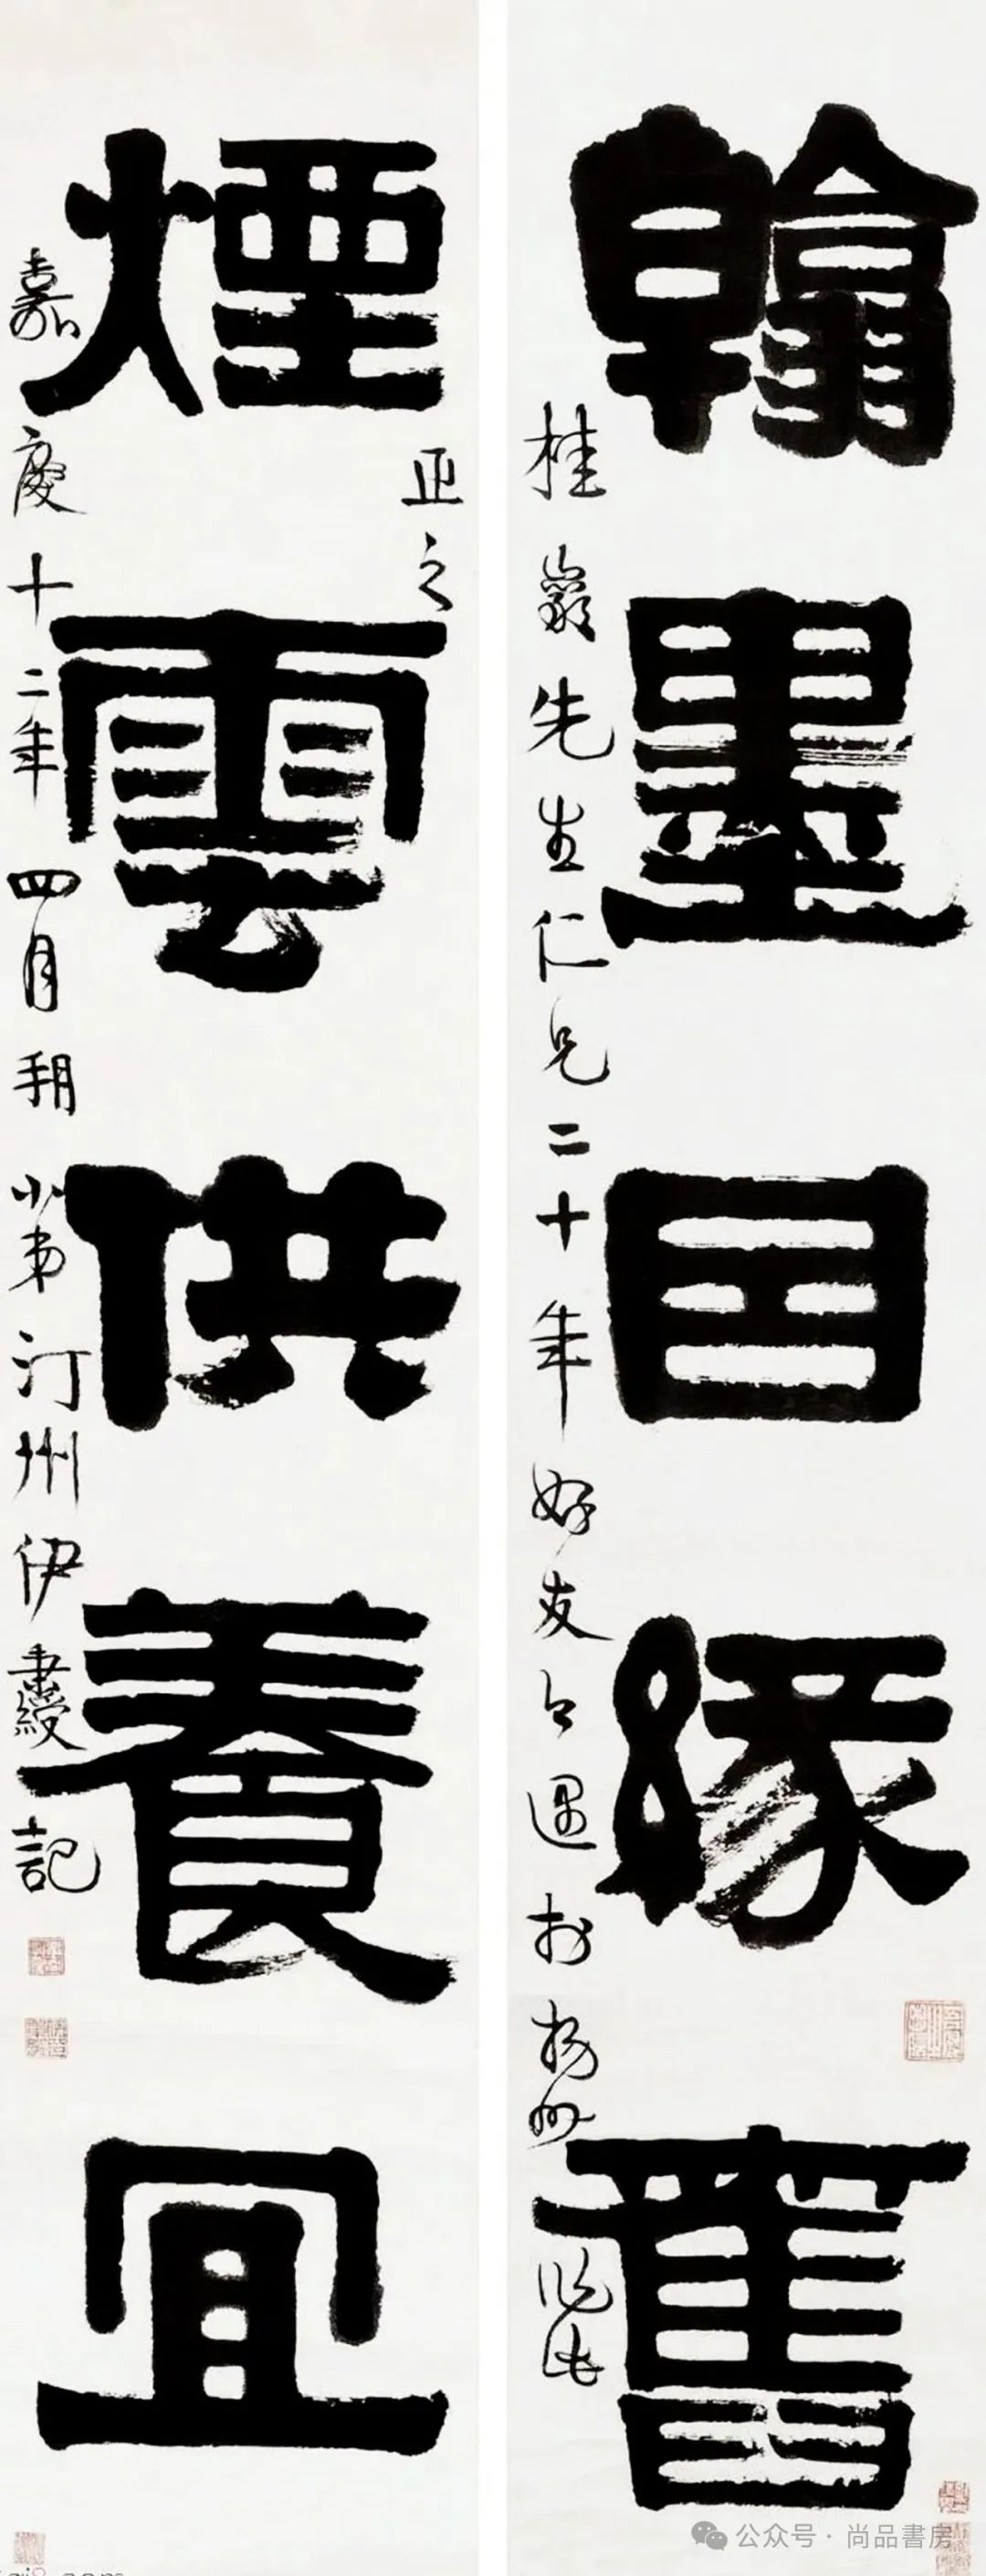 翰墨因緣舊
桂巖先生仁兄二十年好友今遇於揚州作此
煙雲供養宜
正之
嘉慶十二年四月朔小弟汀州伊秉綬記
公众号·尚品書房